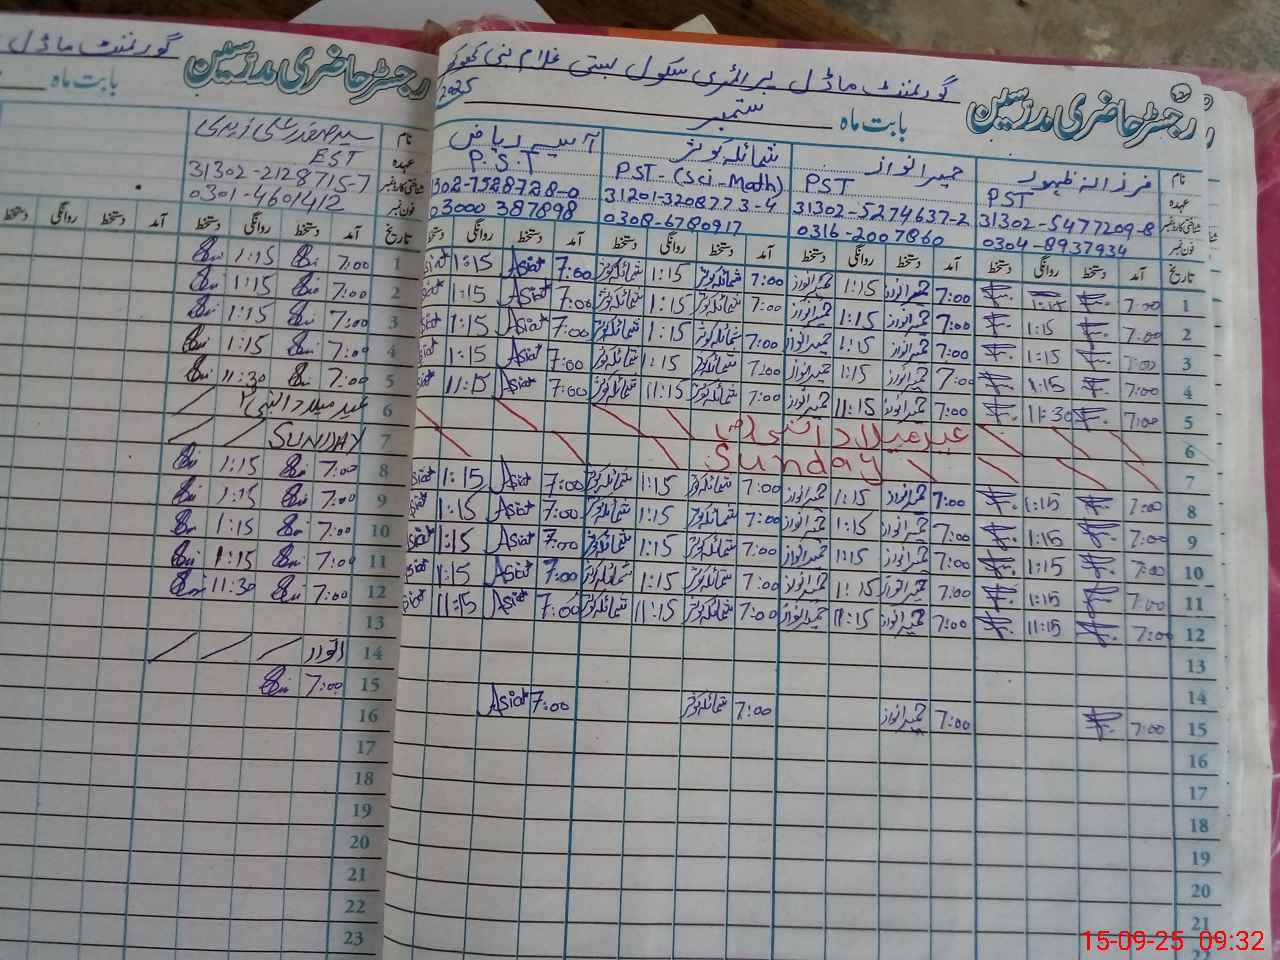 رجسٹر حاضری مدرسین گورنمنٹ ماڈل پرائمری سکول بستی غلام نبی
بابت ماہ ستمبر 2025
نام فرزانہ ظہور
عہدہ PST
شناختی کارڈ نمبر 31302-5477209-8
فون نمبر 0304-8937934
حمیرا نواز
PST
31302-5274637-2
0316-2007860
شمائلہ کوثر
PST-(Sci-Math)
31201-3208773-4
0308-6780917
آسیہ ریاض
P.S.T
302-7528728-0
03000 387898
تاریخ آمد دستخط روانگی دستخط آمد دستخط روانگی دستخط آمد دستخط روانگی دستخط آمد دستخط روانگی دستخط
1 7:00 1:15 7:00 حمیرا نواز 1:15 حمیرا نواز 7:00 شمائلہ کوثر 1:15 شمائلہ کوثر 7:00 Asia 1:15
2 7:00 1:15 7:00 حمیرا نواز 1:15 حمیرا نواز 7:00 شمائلہ کوثر 1:15 شمائلہ کوثر 7:00 Asia 1:15
3 7:00 1:15 7:00 حمیرا نواز 1:15 حمیرا نواز 7:00 شمائلہ کوثر 1:15 شمائلہ کوثر 7:00 Asia 1:15
4 7:00 1:15 7:00 حمیرا نواز 1:15 حمیرا نواز 7:00 شمائلہ کوثر 1:15 شمائلہ کوثر 7:00 Asia 1:15
5 7:00 11:30 7:00 حمیرا نواز 11:15 حمیرا نواز 7:00 شمائلہ کوثر 11:15 شمائلہ کوثر 7:00 Asia 11:15
6 عید میلاد النبی
7 Sunday
8 7:00 1:15 7:00 حمیرا نواز 1:15 حمیرا نواز 7:00 شمائلہ کوثر 1:15 شمائلہ کوثر 7:00 Asia 1:15
9 7:00 1:15 7:00 حمیرا نواز 1:15 حمیرا نواز 7:00 شمائلہ کوثر 1:15 شمائلہ کوثر 7:00 Asia 1:15
10 7:00 1:15 7:00 حمیرا نواز 1:15 حمیرا نواز 7:00 شمائلہ کوثر 1:15 شمائلہ کوثر 7:00 Asia 1:15
11 7:00 1:15 7:00 حمیرا نواز 1:15 حمیرا نواز 7:00 شمائلہ کوثر 1:15 شمائلہ کوثر 7:00 Asia 1:15
12 7:00 11:15 7:00 حمیرا نواز 11:15 حمیرا نواز 7:00 شمائلہ کوثر 11:15 شمائلہ کوثر 7:00 Asia 11:15
13
14
15 7:00 7:00 حمیرا نواز 7:00 شمائلہ کوثر 7:00 Asia
16
17
18
19
20
21
22
رجسٹر حاضری مدرسین گورنمنٹ ماڈل
بابت ماہ
نام
عہدہ EST
شناختی کارڈ نمبر 31302-2128715-7
فون نمبر 0301-4601412
تاریخ آمد دستخط روانگی دستخط آمد دستخط روانگی دستخط
1 7:00 1:15
2 7:00 1:15
3 7:00 1:15
4 7:00 1:15
5 7:00 11:30
6 عید میلاد النبی
7 SUNDAY
8 7:00 1:15
9 7:00 1:15
10 7:00 1:15
11 7:00 1:15
12 7:00 11:30
13
14 اتوار
15 7:00
16
17
18
19
20
21
22
23
15-09-25 09:32